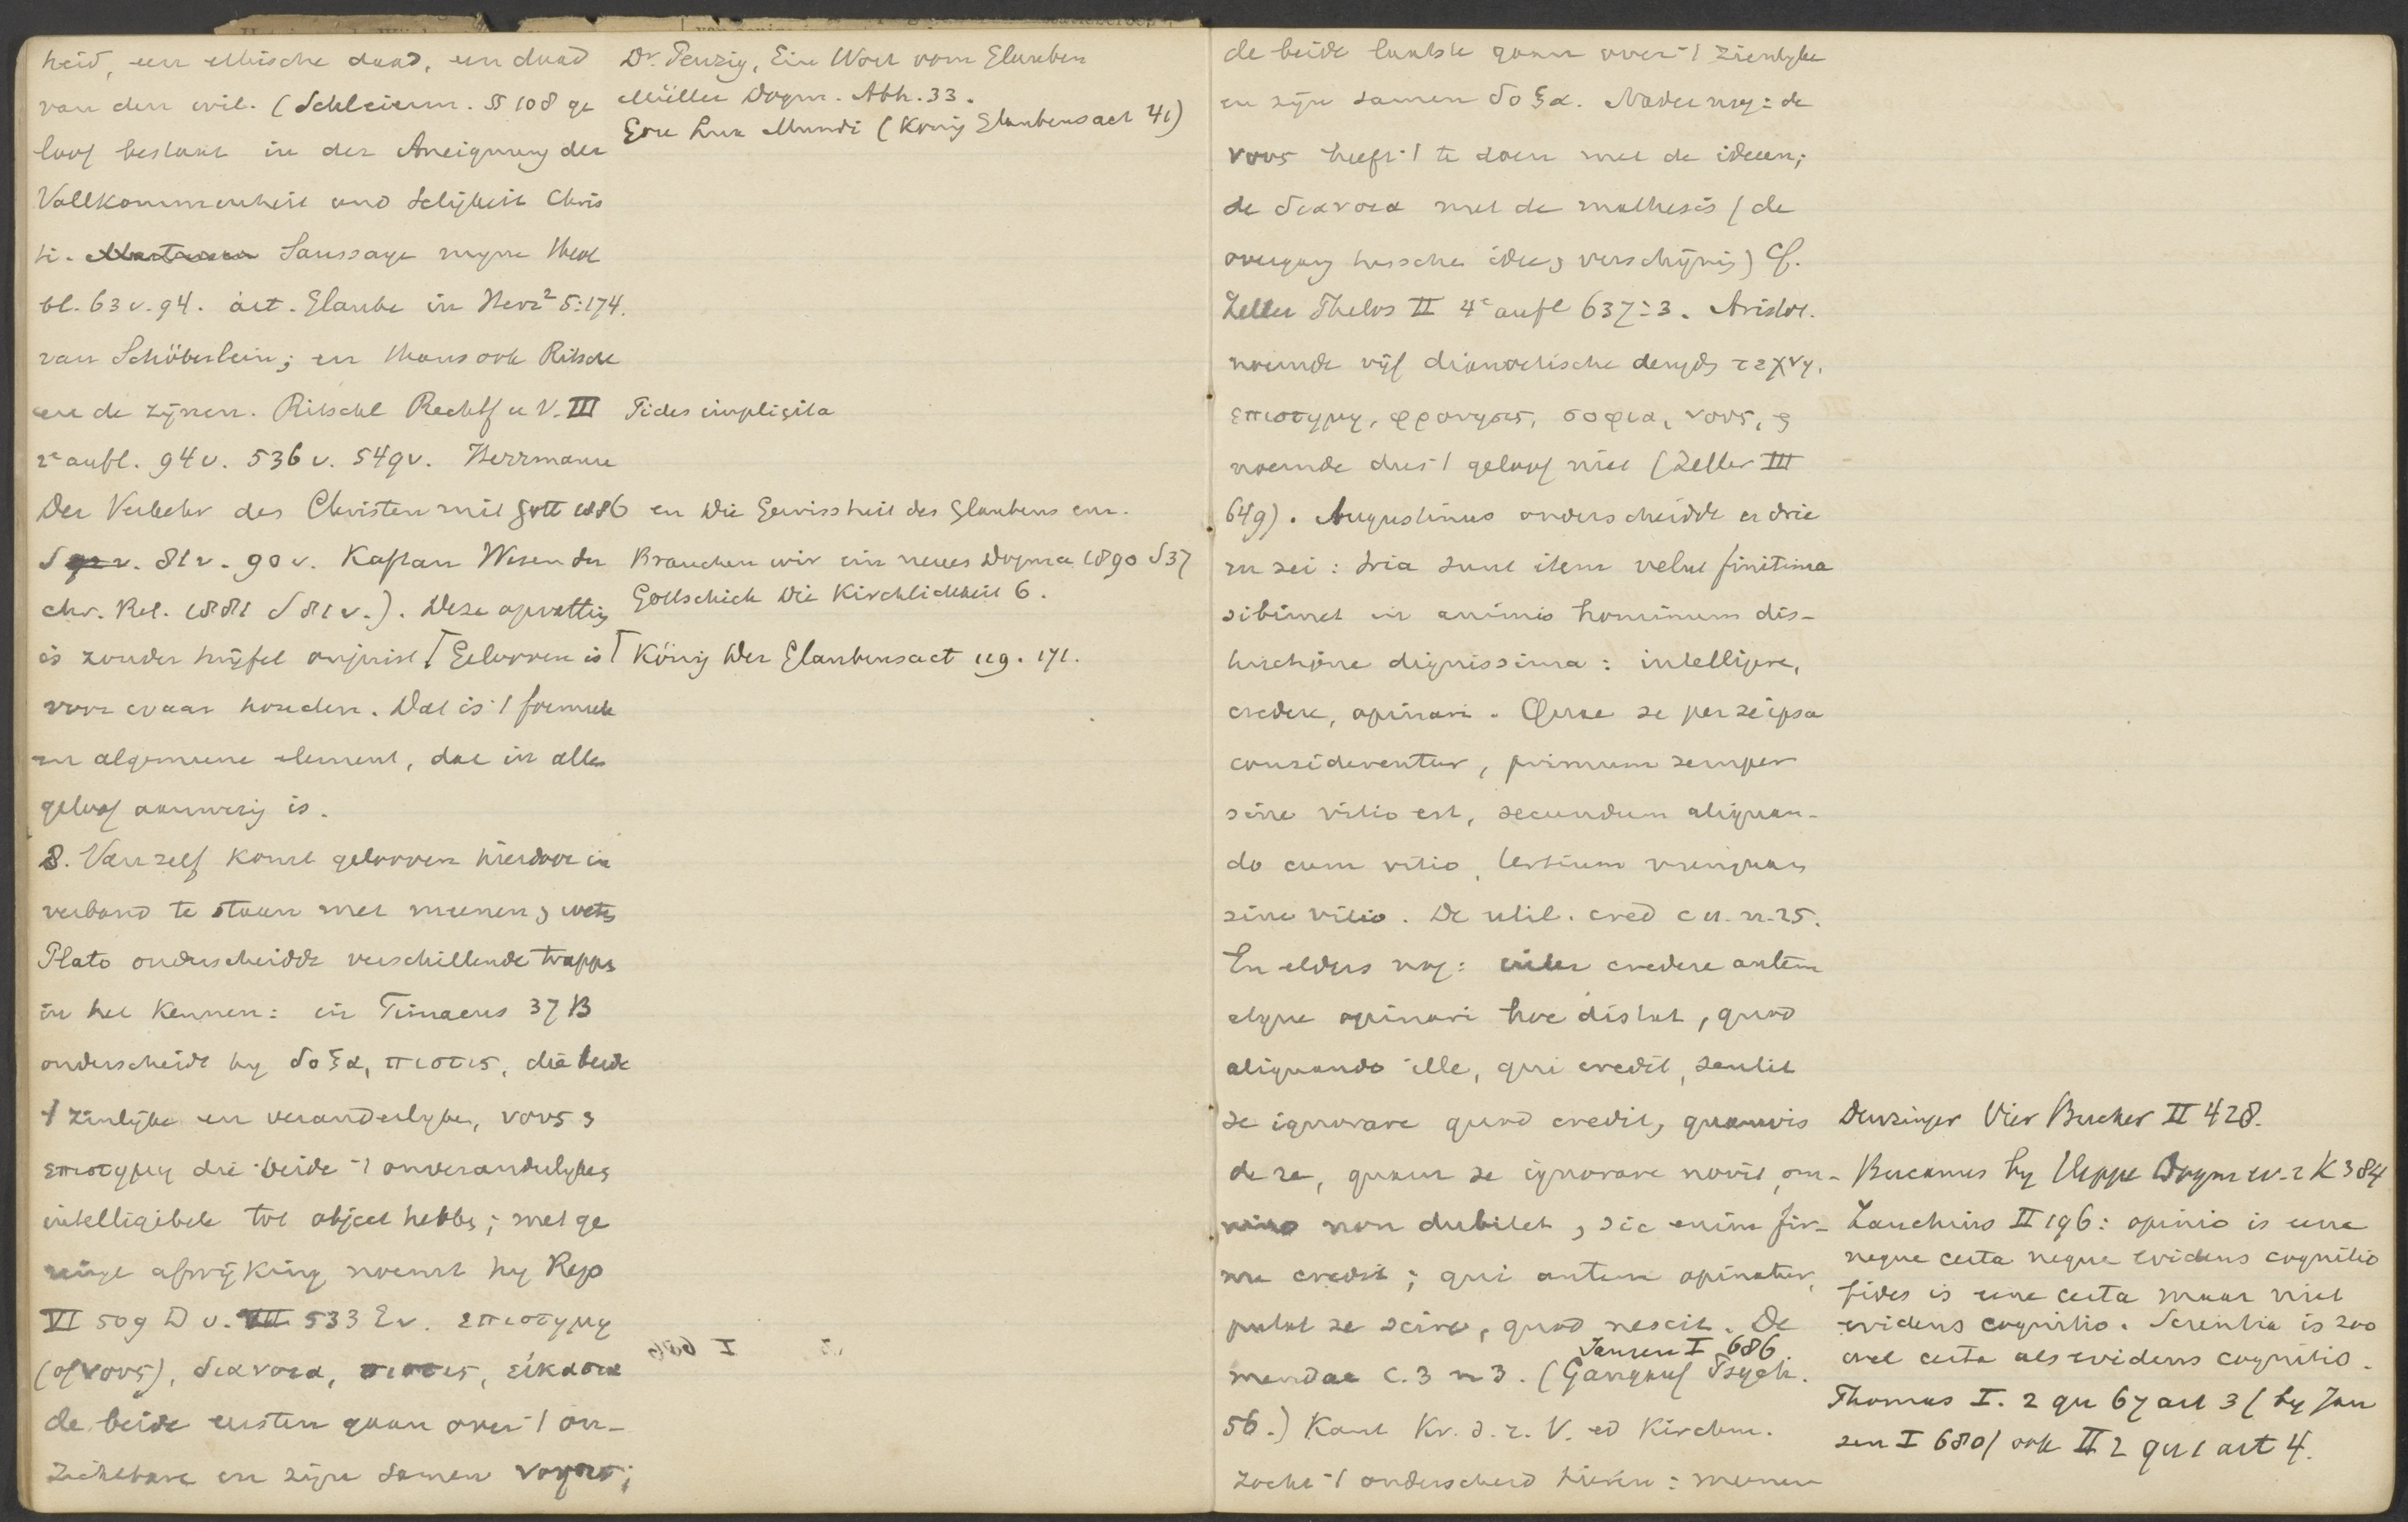 heid, een ethische daad, een daad
van den wil. (Schleierm. § 108 ge
loof bestaat in der Aneignung der
Vollkommenheit und Seligkeit Chris
ti. Saussaye mijne Theol
bl. 63 v. 94. art. Glaube in Herz² 5:174.
van Schöberlein; en thans ook Ritschl
en de zijnen. Ritschl Rechtf u V. III
2e aufl. 94 v. 536 v. 549 v. Herrmann
Der Verkehr des Christen mit Gott 1886
S v. 81 v. 90 v. Kaftan Wesen der
chr. Rel. 1881 S 81 v.). Deze opvatting
is zonder twijfel onjuist ⌈Gelooven is
voor waar houden. Dat is 't formeele
en algemeene element, dat in alle
geloof aanwezig is.
8. Van zelf komt gelooven hierdoor in
verband te staan met meenen & weten
Plato onderscheidde verschillende trappen
in het kennen: in Timaeus 37 B
onderscheidt hy δοξα, πιστις, die beide
't zinlijke en veranderlyke, νους &
επιστημη die beide 't onveranderlyke &
intelligibele tot object hebben; met ge
ringe afwijking noemt hy Rep
VI 509 D v. VII 533 E v. επιστημη
(of νους), διανοια, πιστις, εἰκασια
de beide eersten gaan over 't on-
zichtbare en zijn samen νοησις;
Dr. Penzig, Ein Wort vom Glauben
Müller Dogm. Abh. 33.
Gore Lux Mundi (König Glaubensact 41)
Fides implicita
en Die Gewissheit des Glaubens enz.
Brauchen wir ein neues Dogma 1890 S 37
Gottschick Die Kirchlichkeit 6.
⌈König Der Glaubensact 119. 171.
de beide laatste gaan over 't zienlyke
en zijn samen δοξα. Nader nog: de
νους heeft 't te doen met de ideeen;
de διανοια met de mathesis (de
overgang tusschen idee & verschijning) Cf.
Zeller Philos II 4e aufl 637:3. Aristot.
noemde vijf dianoetische deugden τεχνη,
επιστημη, φρονησις, σοφια, νους, &
noemde dus 't geloof niet (Zeller III
649). Augustinus onderscheidde er drie
en zei: tria sunt item velut finitima
sibimet in animis hominum dis-
tinctione dignissima: intelligere,
credere, opinari. Quae se per se ipsa
considerentur, primum semper
sine vitio est, secundum aliquan-
do cum vitio, tertium nunquam
sine vitio. De util. cred c 11. n. 25.
En elders nog: inter credere autem
atque opinari hoc distat, quod
aliquando ille, qui credit, sentit
se ignorare quod credit, quamvis
de re, quam se ignorare novit, om-
nino non dubitet, sic enim fir-
me credit; qui autem opinatur,
putat se scire, quod nescit. De
Jansen I 686.
mendac c. 3 n 3. (Gangauf Psych.
56.) Kant Kr. d. r. V. ed Kirchm.
zocht 't onderscheid hierin: meenen
Denzinger Vier Bucher II 428.
Bucanus by Heppe Dogm ev. r K 384
Zanchius II 196: opinio is eene
neque certa neque evidens cognitio
fides is eene certa maar niet
evidens cognitio. Scientia is zoo
wel certa als evidens cognitio.
Thomas I. 2 qu 67 art 3 (by Jan
sen I 680) ook II 2 qu 1 art 4.